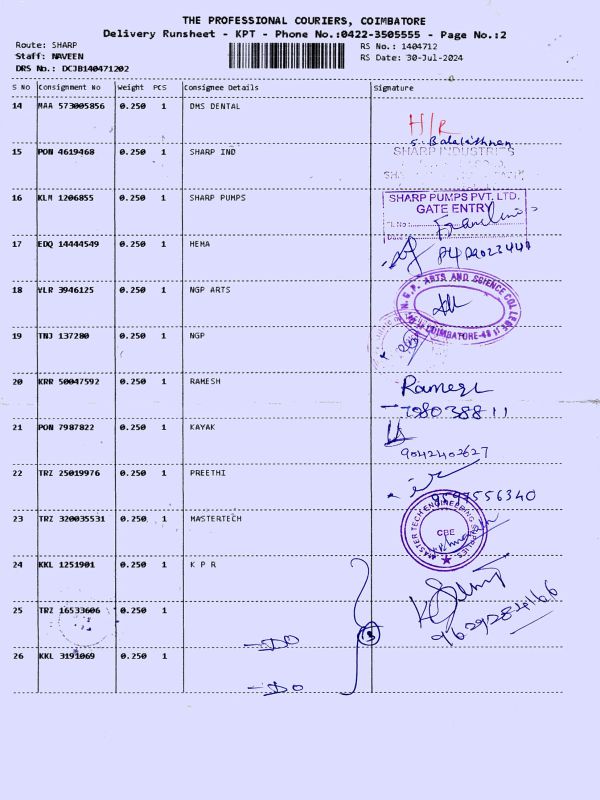 THE PROFESSIONAL COURIERS, COIMBATORE
Delivery Runsheet - KPT - Phone No.:0422-3505555 - Page No.:2
Route: SHARP RS No.: 1404712
Staff: NAVEEN RS Date: 30-Jul-2024
DRS No.: DCJB140471202
S No Consignment No Weight PCS Consignee Details Signature
14 MAA 573005856 0.250 1 DMS DENTAL
H/R
15 PON 4619468 0.250 1 SHARP IND
SHARP INDUSTRIES
16 KLM 1206855 0.250 1 SHARP PUMPS
SHARP PUMPS PVT. LTD.
GATE ENTRY
17 EDQ 14444549 0.250 1 HEMA
18 VLR 3946125 0.250 1 NGP ARTS
N.G.P. ARTS AND SCIENCE COLLEGE
COIMBATORE-48
19 TNJ 137280 0.250 1 NGP
20 KRR 50047592 0.250 1 RAMESH
Ramesh
21 PON 7987822 0.250 1 KAYAK
9042402627
22 TRZ 25019976 0.250 1 PREETHI
9597556340
23 TRZ 320035531 0.250 1 MASTERTECH
MASTER TECH ENGINEERING SUPPLIES
CBE
24 KKL 1251901 0.250 1 K P R
25 TRZ 16533606 0.250 1
3
DO
26 KKL 3191069 0.250 1
DO